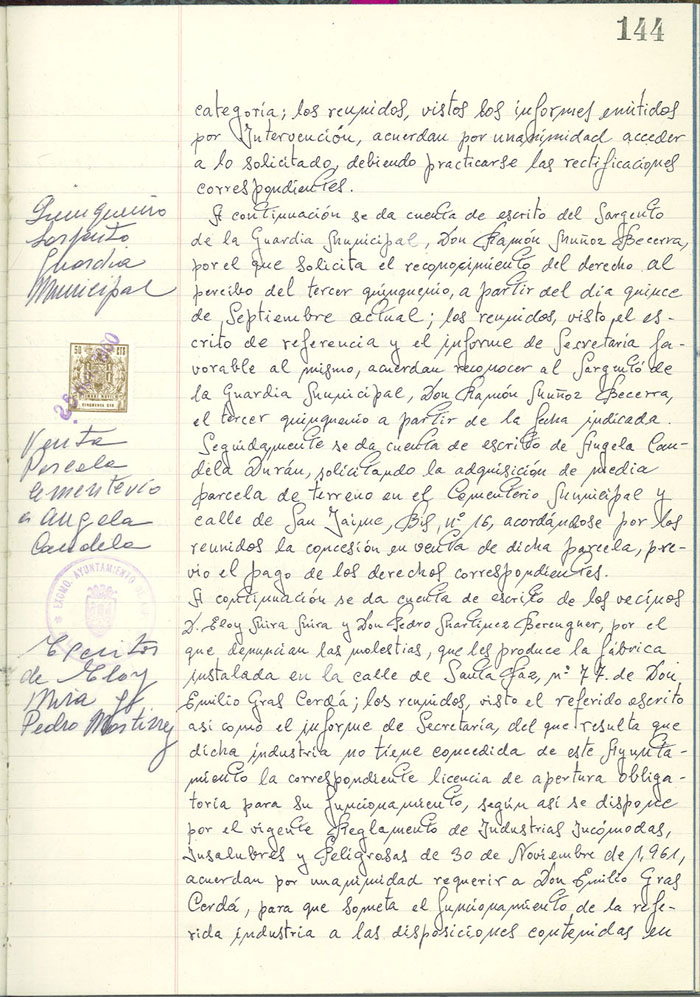 144
categoría; los reunidos, vistos los informes emitidos
por Intervención, acuerdan por unanimidad acceder
a lo solicitado, debiendo practicarse las rectificaciones
correspondientes.
Quinquenio
Sargento
Guardia
Municipal
A continuación se da cuenta de escrito del Sargento
de la Guardia Municipal, Don Ramón Muñoz Becerra,
por el que solicita el reconocimiento del derecho al
percibo del tercer quinquenio, a partir del día quince
de Septiembre actual; los reunidos, visto el es-
crito de referencia y el informe de Secretaría fa-
vorable al mismo, acuerdan reconocer al Sargento de
la Guardia Municipal, Don Ramón Muñoz Becerra,
el tercer quinquenio a partir de la fecha indicada.
50 CTS
Venta
Parcela
Cementerio
a Angela
Candela
Seguidamente se da cuenta de escrito de Angela Can-
dela Durán, solicitando la adquisición de media
parcela de terreno en el Cementerio Municipal y
calle de San Jaime, Bis, nº 16, acordándose por los
reunidos la concesión en venta de dicha parcela, pre-
vio el pago de los derechos correspondientes.
EXCMO. AYUNTAMIENTO DE
Escritos
de Eloy
Mira y
Pedro Martínez
A continuación se da cuenta de escrito de los vecinos
D. Eloy Mira Mira y Don Pedro Martínez Berenguer, por el
que denuncian las molestias, que les produce la fábrica
instalada en la calle de Santa Faz, nº 77. de Don
Emilio Gras Cerdá; los reunidos, visto el referido escrito
así como el informe de Secretaría, del que resulta que
dicha industria no tiene concedida de este Ayunta-
miento la correspondiente licencia de apertura obliga-
toria para su funcionamiento, según así se dispone
por el vigente Reglamento de Industrias Incómodas,
Insalubres y Peligrosas de 30 de Noviembre de 1,961,
acuerdan por unanimidad requerir a Don Emilio Gras
Cerdá, para que someta el funcionamiento de la refe-
rida industria a las disposiciones contenidas en